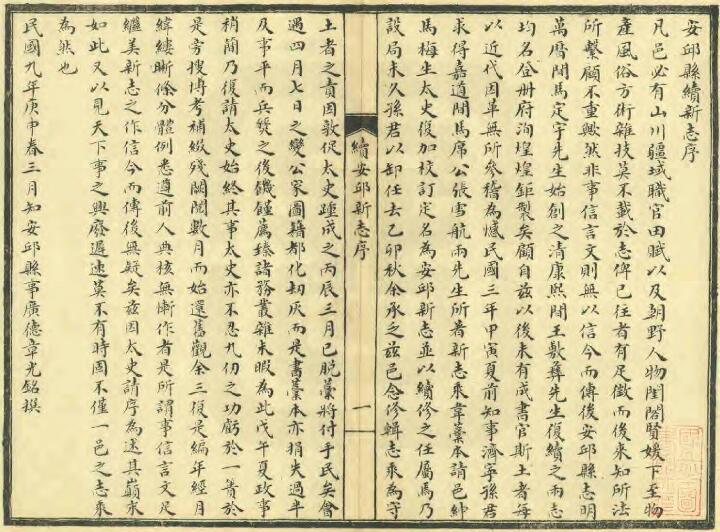 安邱縣續新志序
凡邑必有山川疆域職官田賦以及朝野人物閨閤賢媛下至物
產風俗方術雜技莫不載於志俾已往者有足徵而後來知所法
所繫顧不重歟然非事信言文則無以信今而傳後安邱縣志明
萬曆間馬定宇先生始創之清康熙間王敷彝先生復續之兩志
均名登冊府洵煌煌鉅製矣顧自茲以後未有成書官斯土者每
以近代因革無所參稽為憾民國三年甲寅夏前知事濟寧孫君
求得嘉道間馬席公張雪航兩先生所著新志乘韋藁本請邑紳
馬梅生太史復加校訂定名為安邱新志並以續修之任屬馬乃
設局未久孫君以卸任去乙卯秋余承乏茲邑念修輯志乘為守
續安邱新志序
一
土者之責因敦促太史踵成之丙辰三月已脫藁將付手民矣會
遇四月七日之變公家圖籍都化刧灰而是書藁本亦損失過半
及事平而兵燹之後饑饉薦臻諸務叢雜未暇為此戊午夏政事
稍簡乃復請太史始終其事太史亦不忍九仞之功虧於一簣於
是旁搜博考補綴殘闕閱數月而始還舊觀余三復是編年經月
緯縷晰條分體例悉遵前人典核無慚作者是所謂事信言文足
繼美新志之作信今而傳後無疑矣茲因太史請序為述其巔末
如此又以見天下事之興廢遲速莫不有時固不僅一邑之志乘
為然也
民國九年庚申春三月知安邱縣事廣德章光銘撰